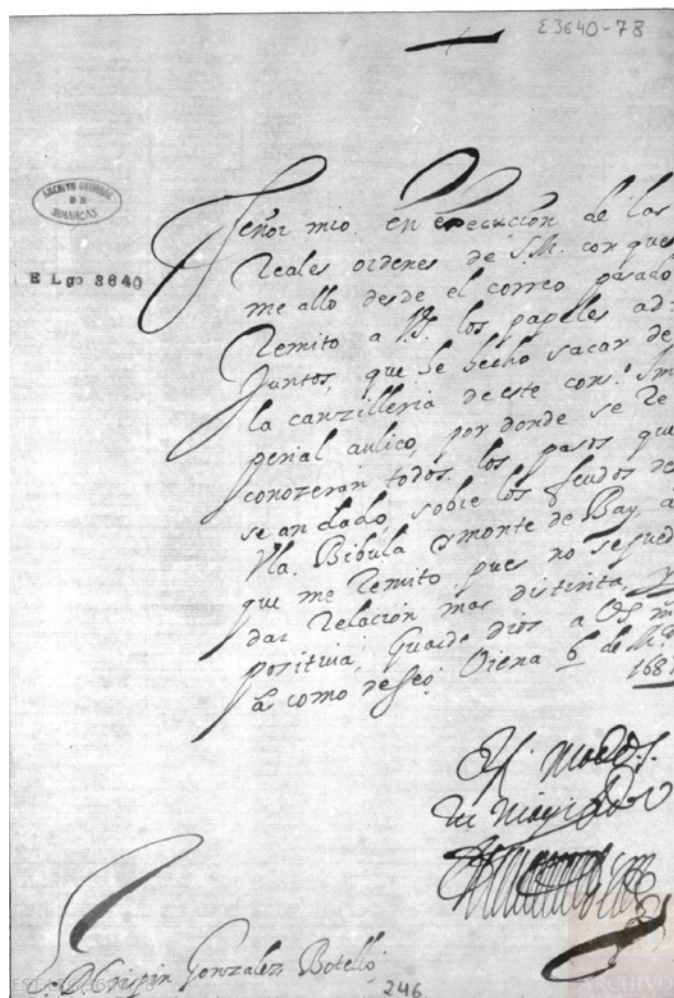 E3640-78
ARCHIVO GENERAL
DE
SIMANCAS
E Lgo 3640
Señor mio. en execución de las
Reales ordenes de S.M. con que
me allo desde el correo pasado
Remito a VS. los papeles ad=
Juntos, que he hecho sacar de
la canzilleria de este cons.º Im
perial aulico, por donde se Re
conozeran todos los pasos que
se an dado, sobre los feudos de
Vla. Bibula Smonte de Bay, a
que me Remito pues no se pued
dar Relación mas distinta, y
positiva, Guarde dios a VS m
a.s como deseo Viena 6 de M.º
1681
S. D. Crispin Gonzalez Botello
246
ARCHIVO